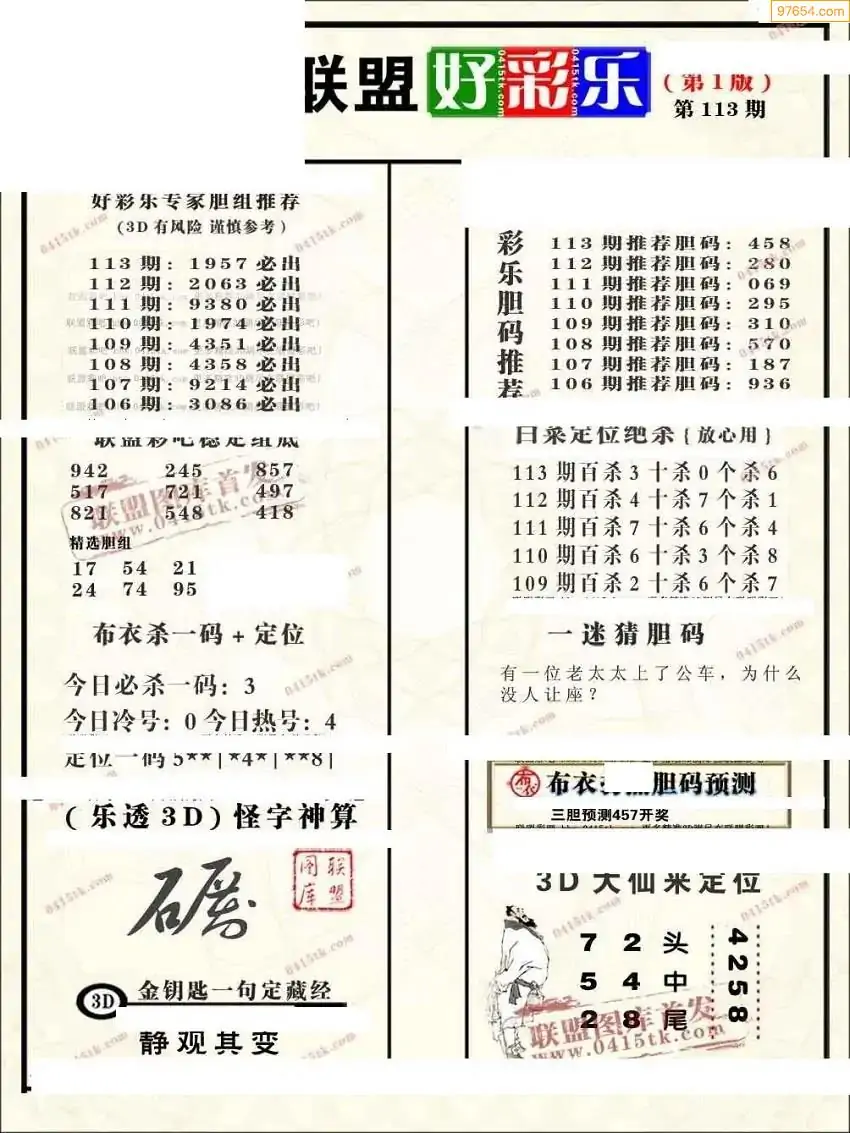 97654.com
联盟 好彩乐
(第1版)
第 113 期
好彩乐专家胆组推荐
(3D 有风险 谨慎参考)
113 期: 1957 必出
112 期: 2063 必出
111 期: 9380 必出
110 期: 1974 必出
109 期: 4351 必出
108 期: 4358 必出
107 期: 9214 必出
106 期: 3086 必出
联盟彩吧稳定组底
942 245 857
517 721 497
821 548 418
精选胆组
17 54 21
24 74 95
布衣杀一码 + 定位
今日必杀一码: 3
今日冷号: 0 今日热号: 4
定位一码 5**|*4*|**8|
(乐透 3D) 怪字神算
联盟图库
3D 金钥匙一句定藏经
静观其变
彩乐胆码推荐
113 期推荐胆码: 458
112 期推荐胆码: 280
111 期推荐胆码: 069
110 期推荐胆码: 295
109 期推荐胆码: 310
108 期推荐胆码: 570
107 期推荐胆码: 187
106 期推荐胆码: 936
白菜定位绝杀 { 放心用 }
113 期百杀 3 十杀 0 个杀 6
112 期百杀 4 十杀 7 个杀 1
111 期百杀 7 十杀 6 个杀 4
110 期百杀 6 十杀 3 个杀 8
109 期百杀 2 十杀 6 个杀 7
一迷猜胆码
有一位老太太上了公车，为什么
没人让座？
布衣 胆码预测
三胆预测457开奖
3D 大仙来定位
7 2 头
5 4 中
2 8 尾
4258
联盟图库首发
www.0415tk.com